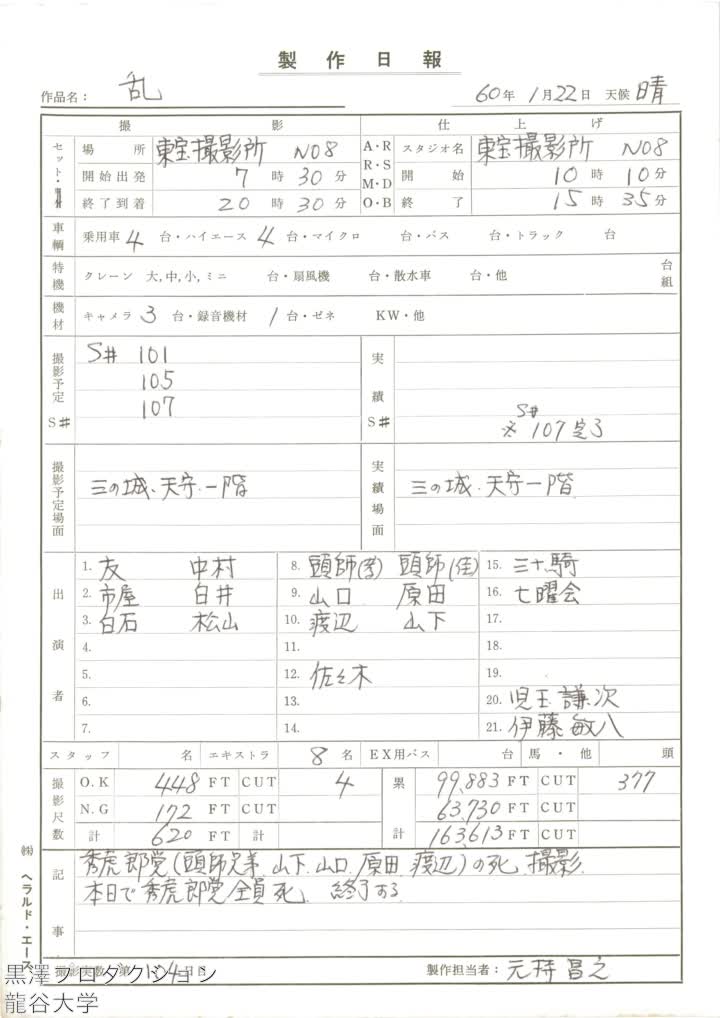 製作日報
作品名： 乱
60年 1月22日 天候 晴
撮影
仕上げ
セット・
場所 東宝撮影所 NO8
A・R R・S M・D O・B
スタジオ名 東宝撮影所 NO8
開始出発 7時30分
開始 10時10分
終了到着 20時30分
終了 15時35分
車輌 乗用車 4 台・ハイエース 4 台・マイクロ 台・バス 台・トラック 台
特機 クレーン 大,中,小,ミニ 台・扇風機 台・散水車 台・他 台 組
機材 キャメラ 3 台・録音機材 1 台・ゼネ KW・他
撮影予定 S#
S# 101
105
107
実績 S#
S#
※ 107 完了
撮影予定場面 三の城、天守一階
実績場面 三の城、天守一階
出演者
1. 友 中村 8. 頭師(孝) 頭師(佳) 15. 三十騎
2. 市屋 白井 9. 山口 原田 16. 七曜会
3. 白石 松山 10. 渡辺 山下 17.
4. 11. 18.
5. 12. 佐々木 19.
6. 13. 20. 児玉謙次
7. 14. 21. 伊藤敏八
スタッフ 名 エキストラ 8 名 EX用バス 台 馬・他 頭
撮影尺数
O.K 448 FT CUT 4 累 99,883 FT CUT 377
N.G 172 FT CUT 63,730 FT CUT
計 620 FT 計 計 163,613 FT CUT
記事
秀虎郎党(頭師兄弟、山下、山口、原田、渡辺)の死、撮影.
本日で秀虎郎党全員死、終了する.
撮影実数 第 4日目
製作担当者： 元持昌之
㈱ ヘラルド・エース
黒澤プロダクション
龍谷大学